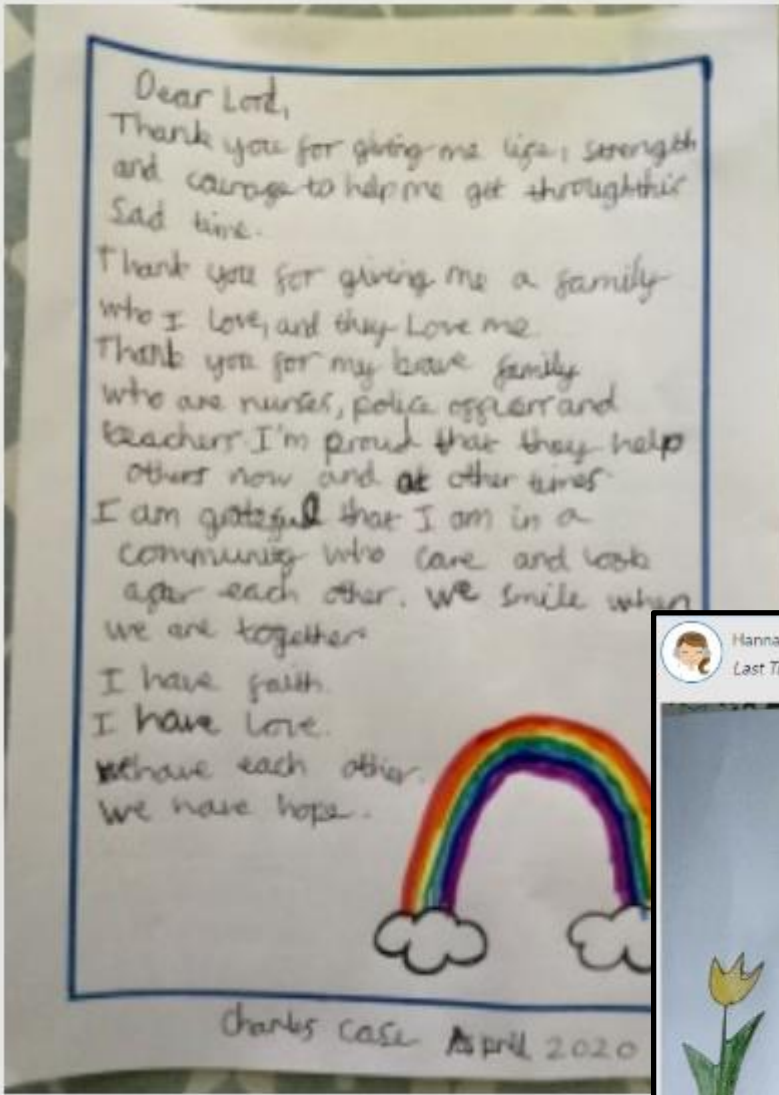 Dear Lord,
Thank you for giving me life, strength
and courage to help me get through this
Sad time.
Thank you for giving me a family
who I love, and they Love me.
Thank you for my brave family
who are nurses, police officers and
teachers. I'm proud that they help
others now and at other times
I am grateful that I am in a
community who care and look
after each other. We smile when
we are together.
I have faith.
I have love.
We have each other.
We have hope.
Charles Case April 2020
Hanna
Last T